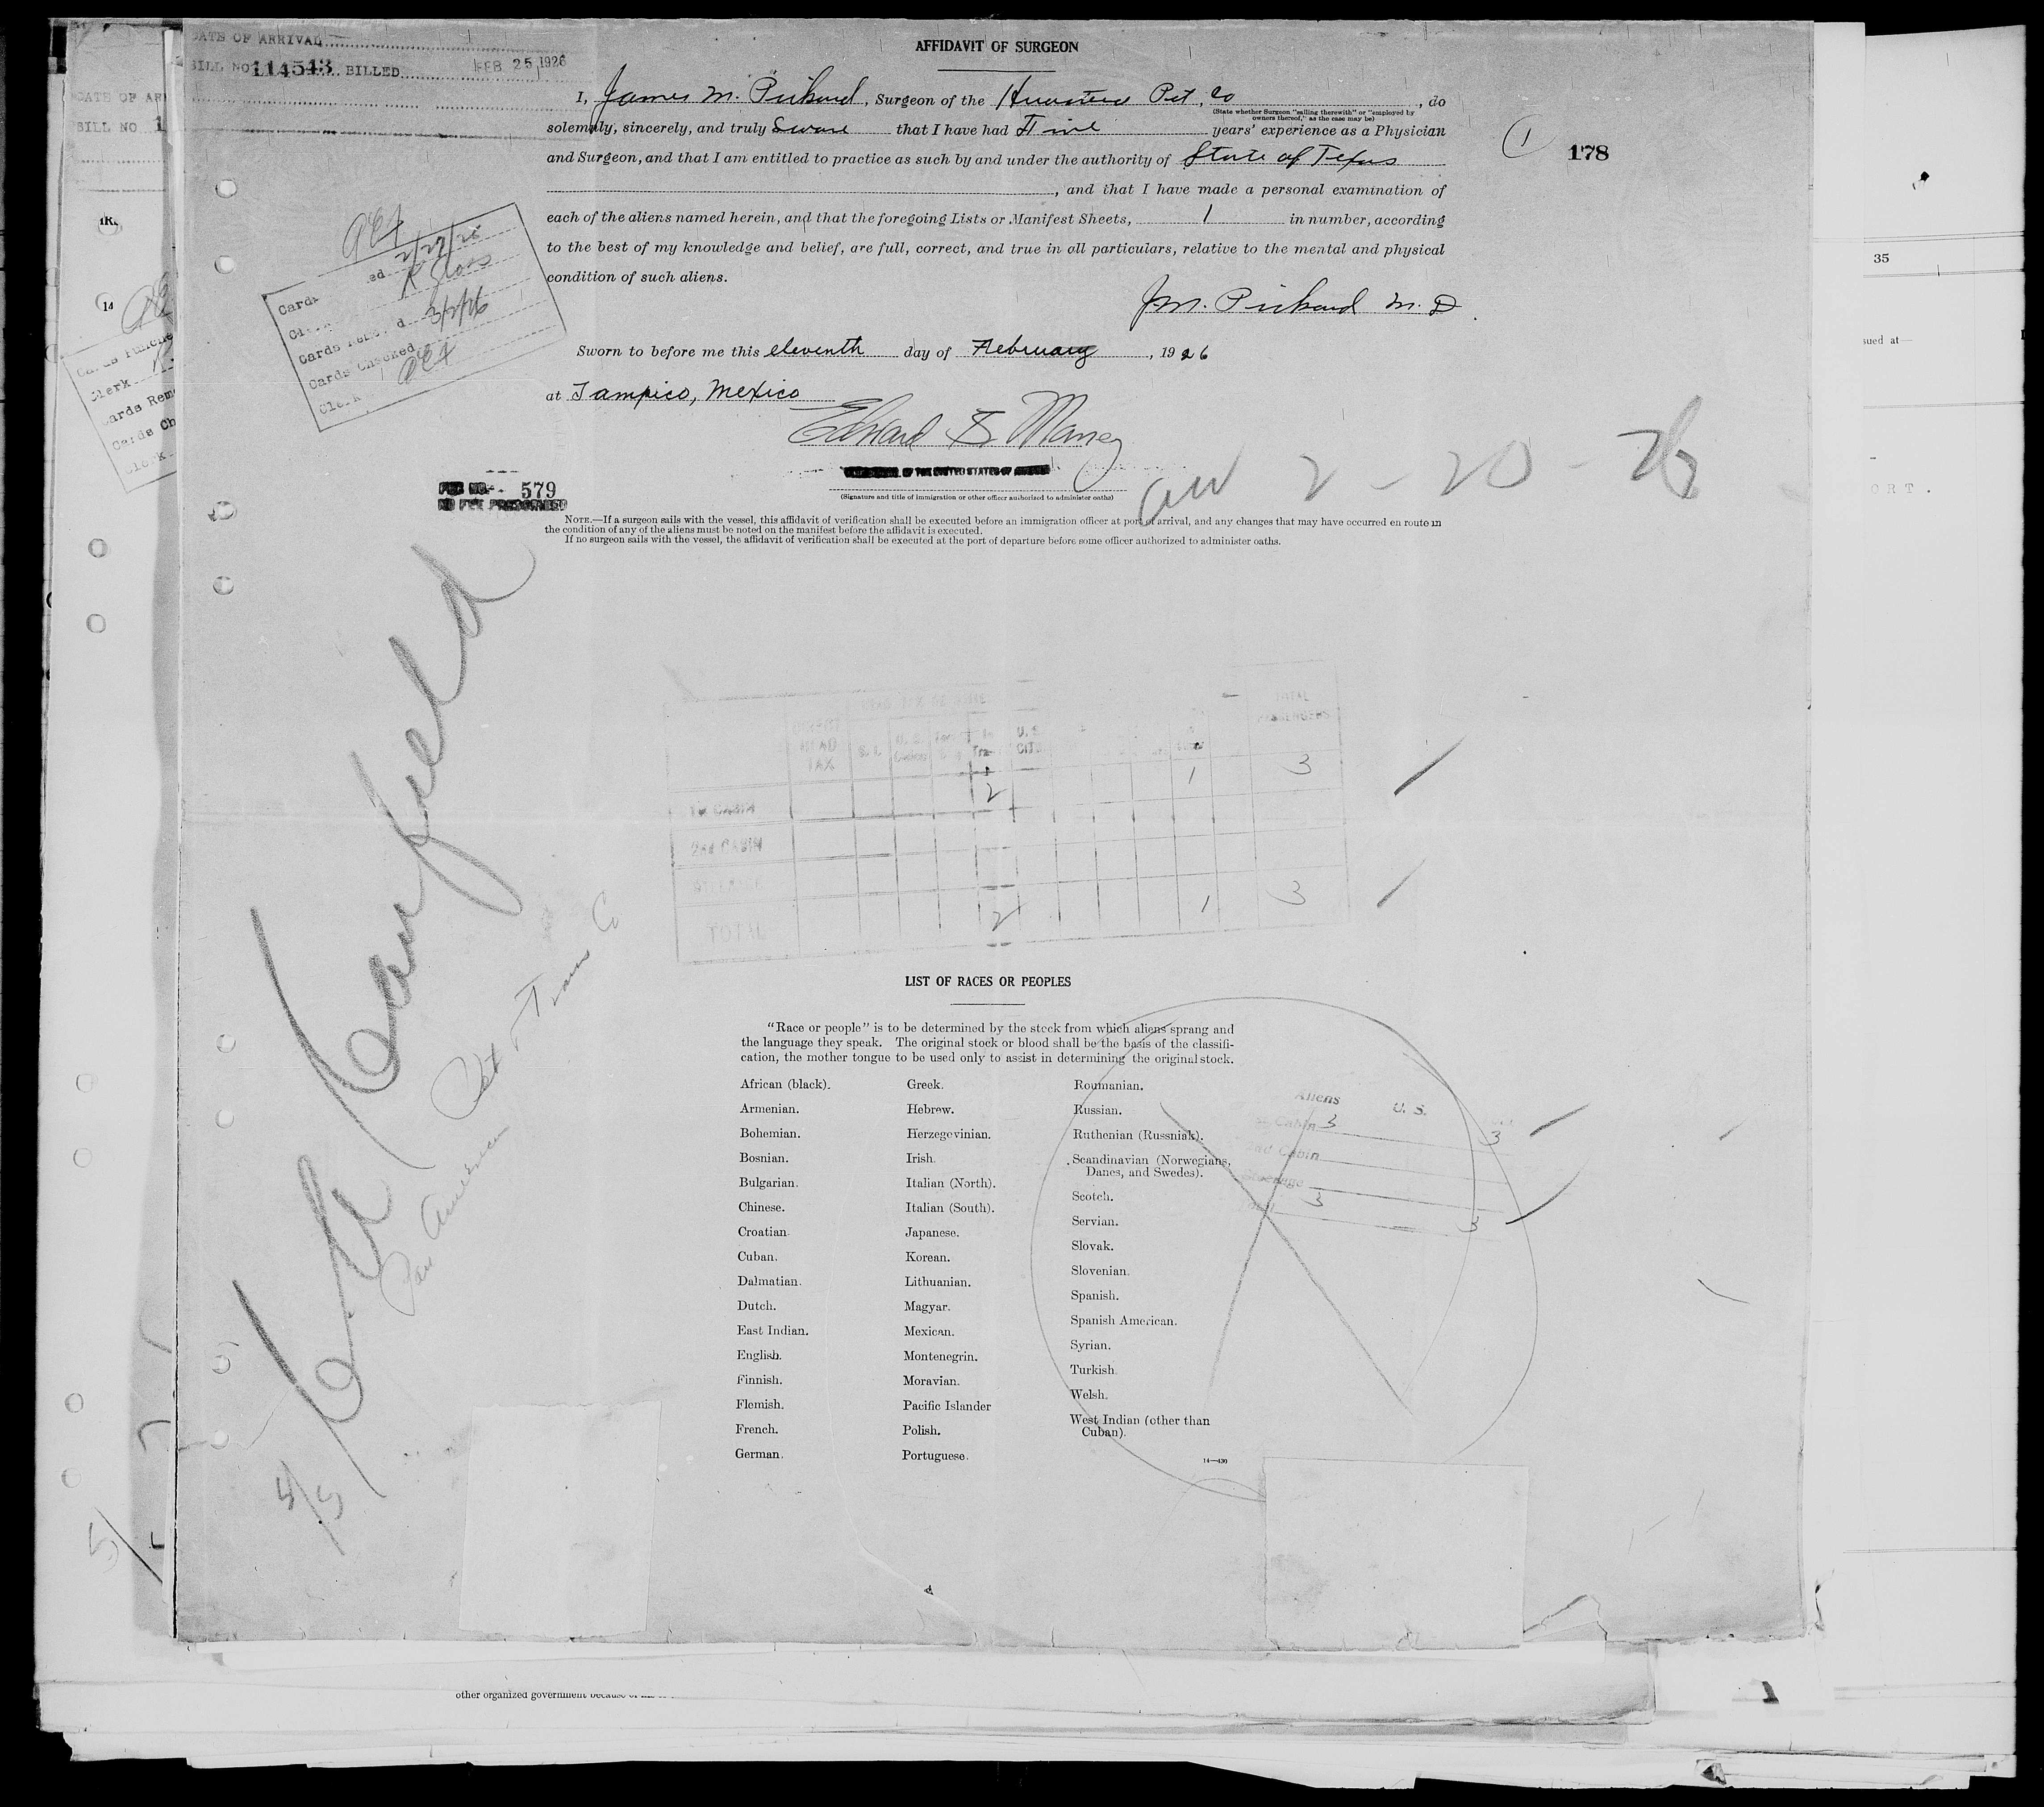 DATE OF ARRIVAL
BILL NO 114543 BILLED FEB 25 1926
DATE OF AR
BILL NO 1
AFFIDAVIT OF SURGEON
I, James M. Pickard, Surgeon of the Huasteca Pet. Co, do
(State whether Surgeon "sailing therewith" or "employed by
owners thereof," as the case may be)
solemnly, sincerely, and truly Swear that I have had Five years' experience as a Physician
and Surgeon, and that I am entitled to practice as such by and under the authority of State of Texas
, and that I have made a personal examination of
each of the aliens named herein, and that the foregoing Lists or Manifest Sheets, 1 in number, according
to the best of my knowledge and belief, are full, correct, and true in all particulars, relative to the mental and physical
condition of such aliens.
J.M. Pickard M.D.
Sworn to before me this eleventh day of February, 1926
at Tampico, Mexico
OF THE UNITED STATES OF
(Signature and title of immigration or other officer authorized to administer oaths)
1
178
35
sued at—
ORT.
Cards
Cards Removed 3/2/26
Cards Checked
Clerk
Clerk
Cards Rem
Cards Ch
Clerk
579
NO FEE PRESCRIBED
2-20-26
NOTE.—If a surgeon sails with the vessel, this affidavit of verification shall be executed before an immigration officer at port of arrival, and any changes that may have occurred en route in
the condition of any of the aliens must be noted on the manifest before the affidavit is executed.
If no surgeon sails with the vessel, the affidavit of verification shall be executed at the port of departure before some officer authorized to administer oaths.
C.A. Canfield
Pan American Pet Trans Co
5/5
TOTAL
TAX U.S. CIT.
1st CABIN 2 1 3
2nd CABIN
TOTAL 2 1 3
LIST OF RACES OR PEOPLES
"Race or people" is to be determined by the stock from which aliens sprang and
the language they speak. The original stock or blood shall be the basis of the classifi-
cation, the mother tongue to be used only to assist in determining the original stock.
African (black).
Armenian.
Bohemian.
Bosnian.
Bulgarian.
Chinese.
Croatian.
Cuban.
Dalmatian.
Dutch.
East Indian.
English.
Finnish.
Flemish.
French.
German.
Greek.
Hebrew.
Herzegovinian.
Irish.
Italian (North).
Italian (South).
Japanese.
Korean.
Lithuanian.
Magyar.
Mexican.
Montenegrin.
Moravian.
Pacific Islander
Polish.
Portuguese.
Roumanian.
Russian.
Ruthenian (Russniak).
Scandinavian (Norwegians,
Danes, and Swedes).
Scotch.
Servian.
Slovak.
Slovenian.
Spanish.
Spanish American.
Syrian.
Turkish.
Welsh.
West Indian (other than
Cuban).
14—430
Aliens U. S.
Cabin 3 3
2nd Cabin
Steerage
3 3
other organized government because of
1